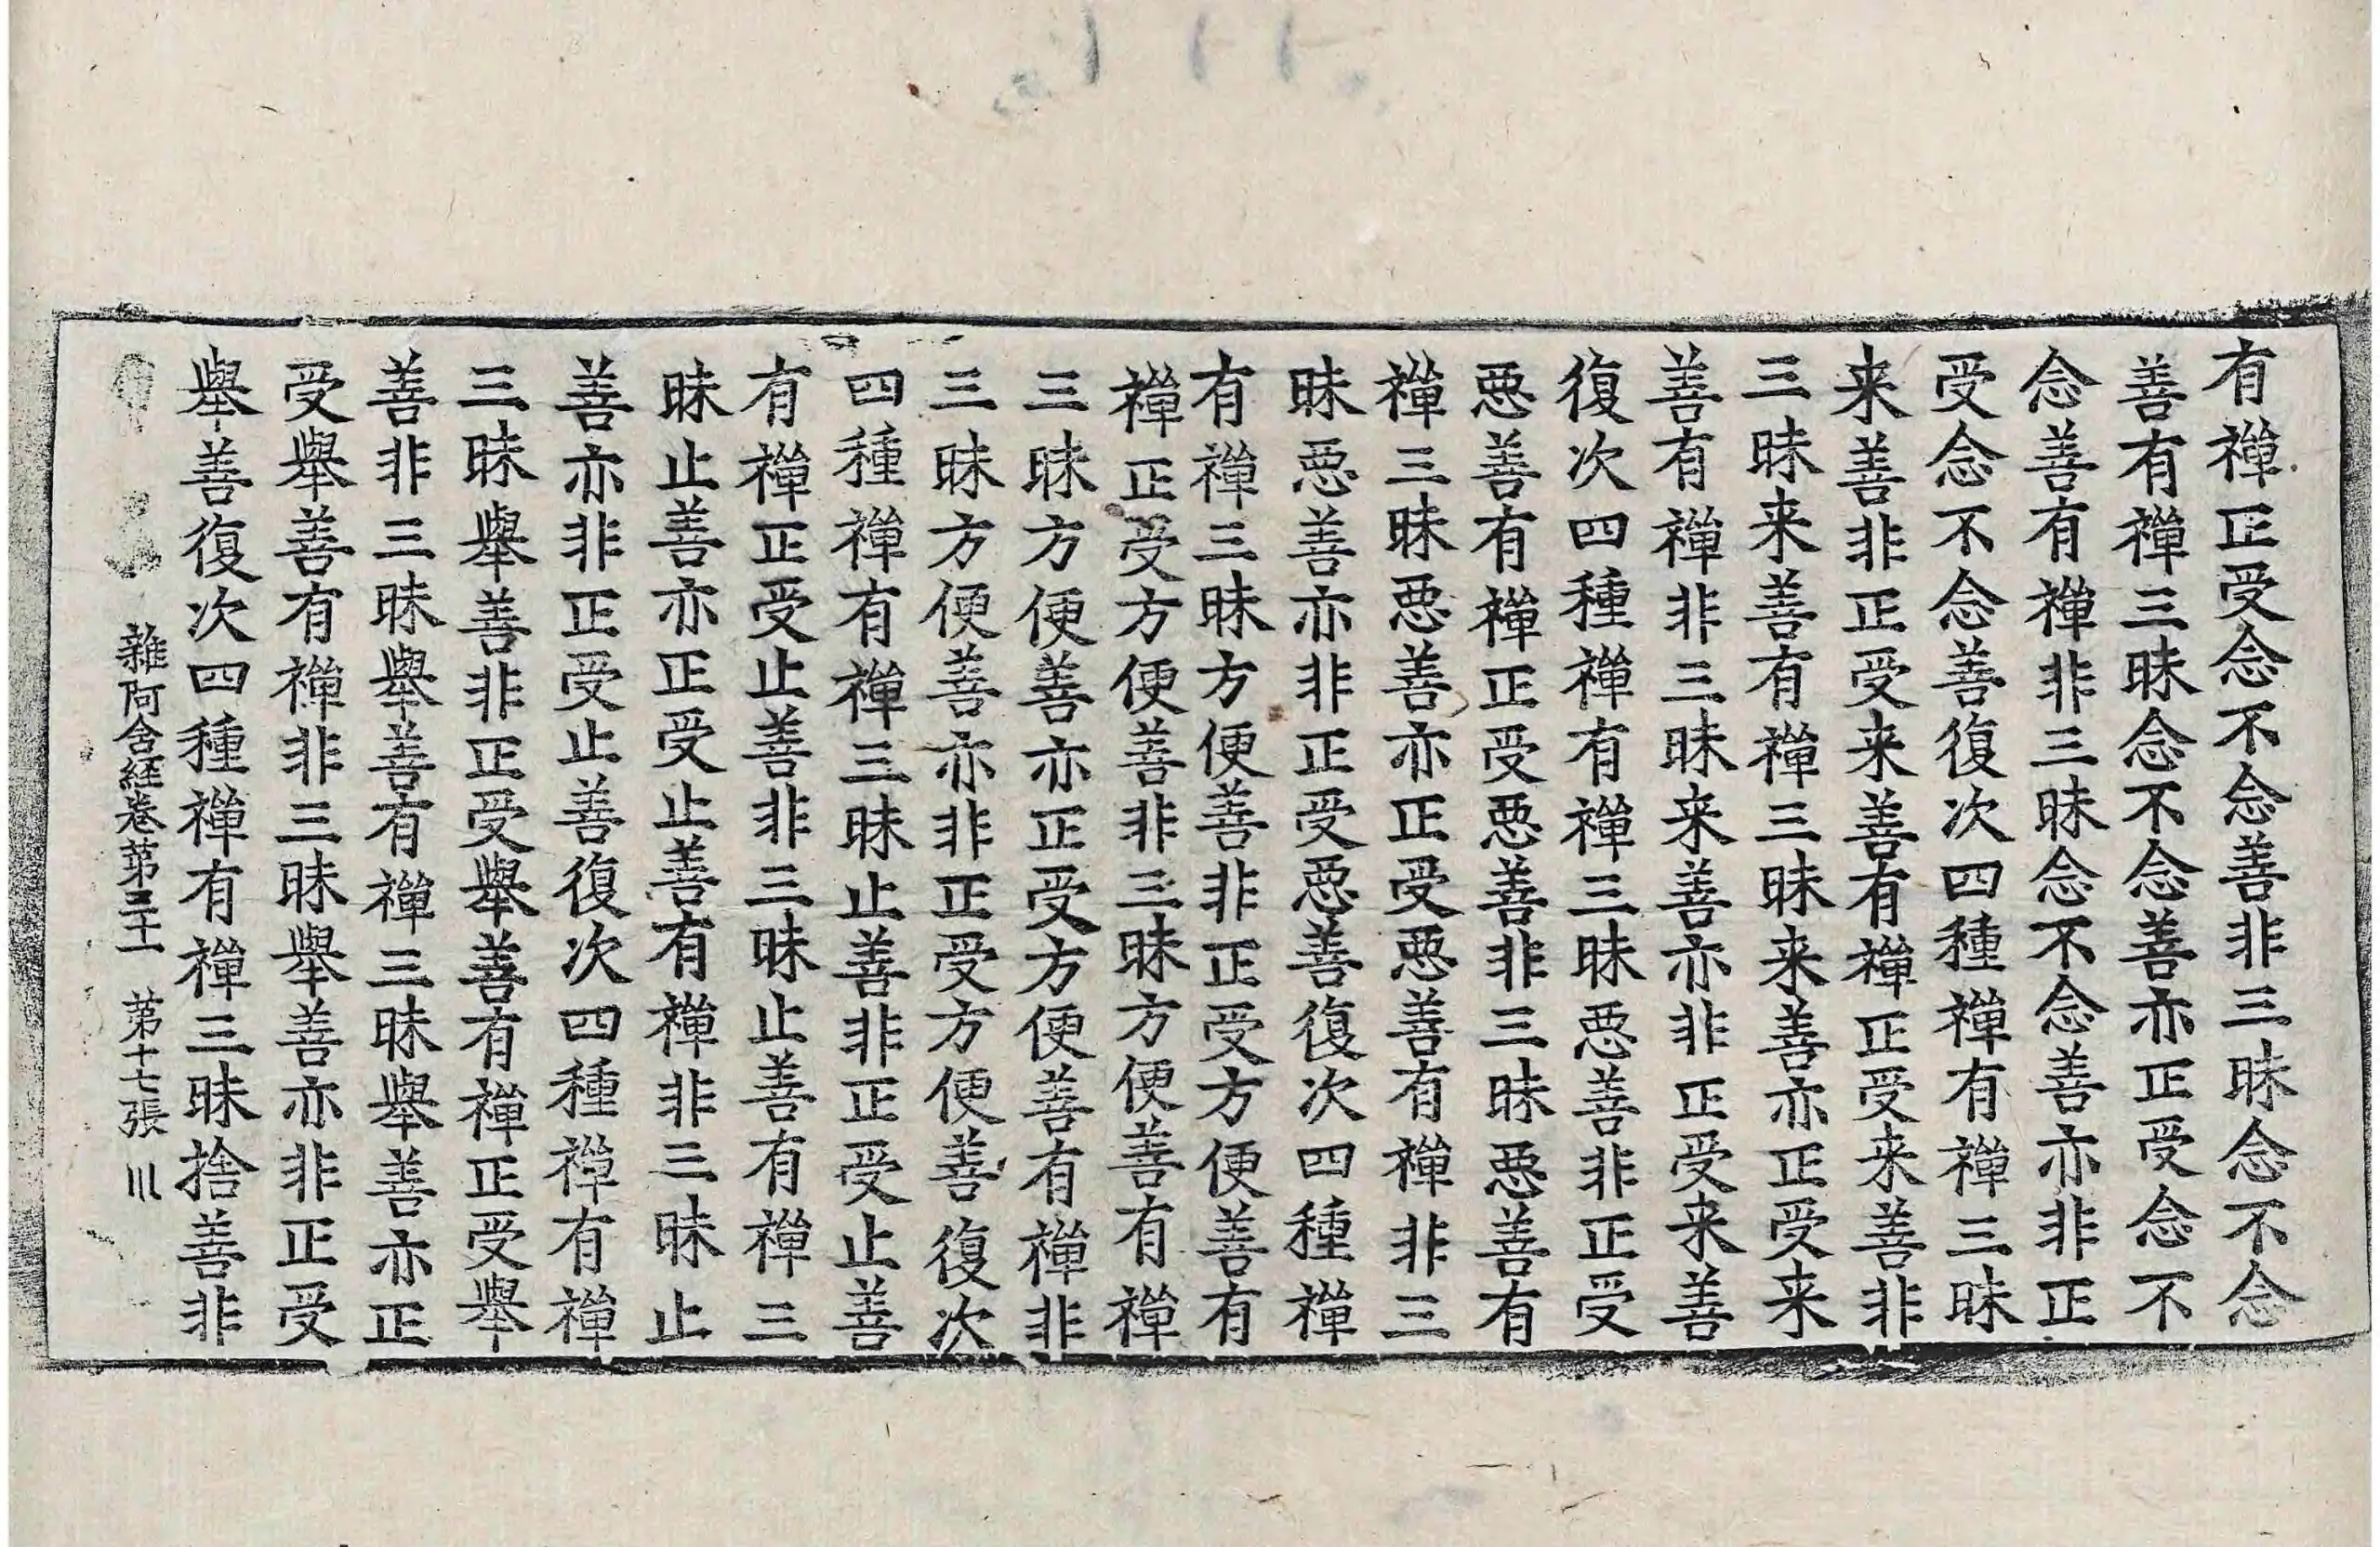 有禪正受念不念善非三昧念不念
善有禪三昧念不念善亦正受念不
念善有禪非三昧念不念善亦非正
受念不念善復次四種禪有禪三昧
来善非正受来善有禪正受来善非
三昧来善有禪三昧来善亦正受来
善有禪非三昧来善亦非正受来善
復次四種禪有禪三昧惡善非正受
惡善有禪正受惡善非三昧惡善有
禪三昧惡善亦正受惡善有禪非三
昧惡善亦非正受惡善復次四種禪
有禪三昧方便善非正受方便善有
禪正受方便善非三昧方便善有禪
三昧方便善亦正受方便善有禪非
三昧方便善亦非正受方便善復次
四種禪有禪三昧止善非正受止善
有禪正受止善非三昧止善有禪三
昧止善亦正受止善有禪非三昧止
善亦非正受止善復次四種禪有禪
三昧舉善非正受舉善有禪正受舉
善非三昧舉善有禪三昧舉善亦正
受舉善有禪非三昧舉善亦非正受
舉善復次四種禪有禪三昧捨善非
雜阿含経卷第三十一 第十七張